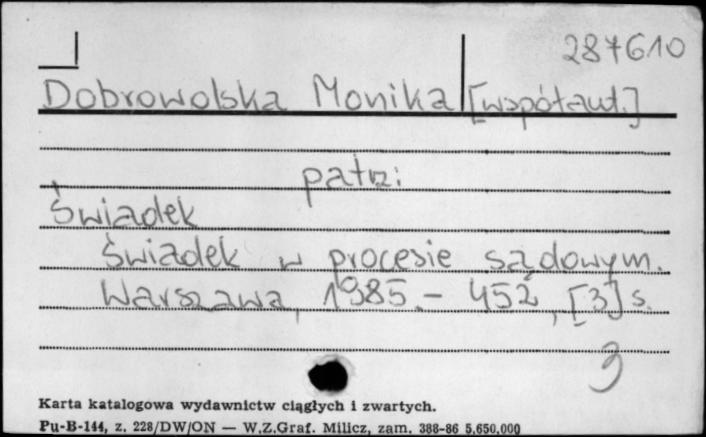 287610
Dobrowolska Monika [współaut.]
patrz:
Świadek
Świadek w procesie sądowym.
Warszawa, 1985. - 452, [3] s.
g
Karta katalogowa wydawnictw ciągłych i zwartych.
Pu-B-144, z. 228/DW/ON — W.Z.Graf. Milicz, zam. 388-86 5.650.000